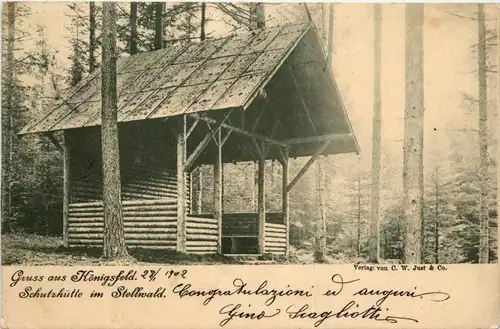 Gruss aus Königsfeld. 27/1 1902
Verlag von C. W. Just & Co.
Schutzhütte im Stellwald.
Congratulazioni ed auguri.
Gino Scagliotti